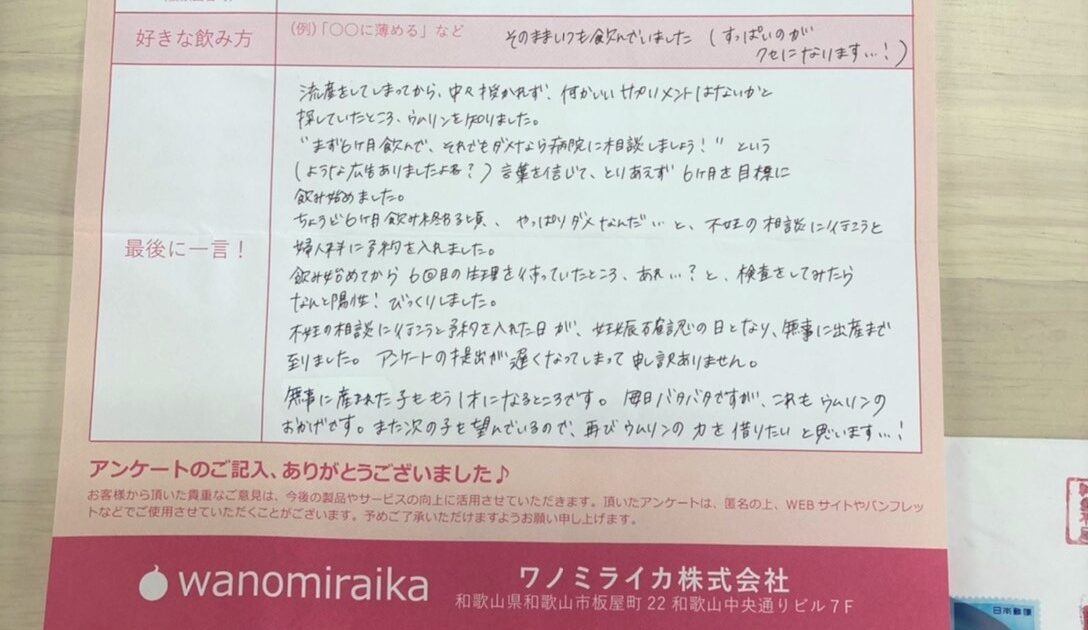 好きな飲み方
(例)「○○に薄める」など
そのままいつも飲んでいました (すっぱいのが
クセになります…!)
最後に一言！
流産をしてしまってから、中々授かれず、何かいいサプリメントはないかと
探していたところ、ウムリンを知りました。
"まず6ヶ月飲んで、それでもダメなら病院に相談しましょう!" という
(ような広告ありましたよね?) 言葉を信じて、とりあえず 6ヶ月を目標に
飲み始めました。
ちょうど6ヶ月飲み終わる頃、やっぱりダメなんだ… と、不妊の相談に行こうと
婦人科に予約を入れました。
飲み始めてから 6回目の生理を待っていたところ、あれ…? と、検査をしてみたら
なんと陽性! びっくりしました。
不妊の相談に行こうと予約を入れた日が、妊娠確認の日となり、無事に出産まで
至りました。アンケートの提出が遅くなってしまって申し訳ありません。
無事に産まれた子ももう1才になるところです。毎日バタバタですが、これもウムリンの
おかげです。また次の子も望んでいるので、再びウムリンの力を借りたいと思います…!
アンケートのご記入、ありがとうございました♪
お客様から頂いた貴重なご意見は、今後の製品やサービスの向上に活用させていただきます。頂いたアンケートは、匿名の上、WEBサイトやパンフレッ
トなどでご使用させていただくことがございます。予めご了承いただけますようお願い申し上げます。
wanomiraika
ワノミライカ株式会社
和歌山県和歌山市板屋町 22 和歌山中央通りビル7F
日本郵便